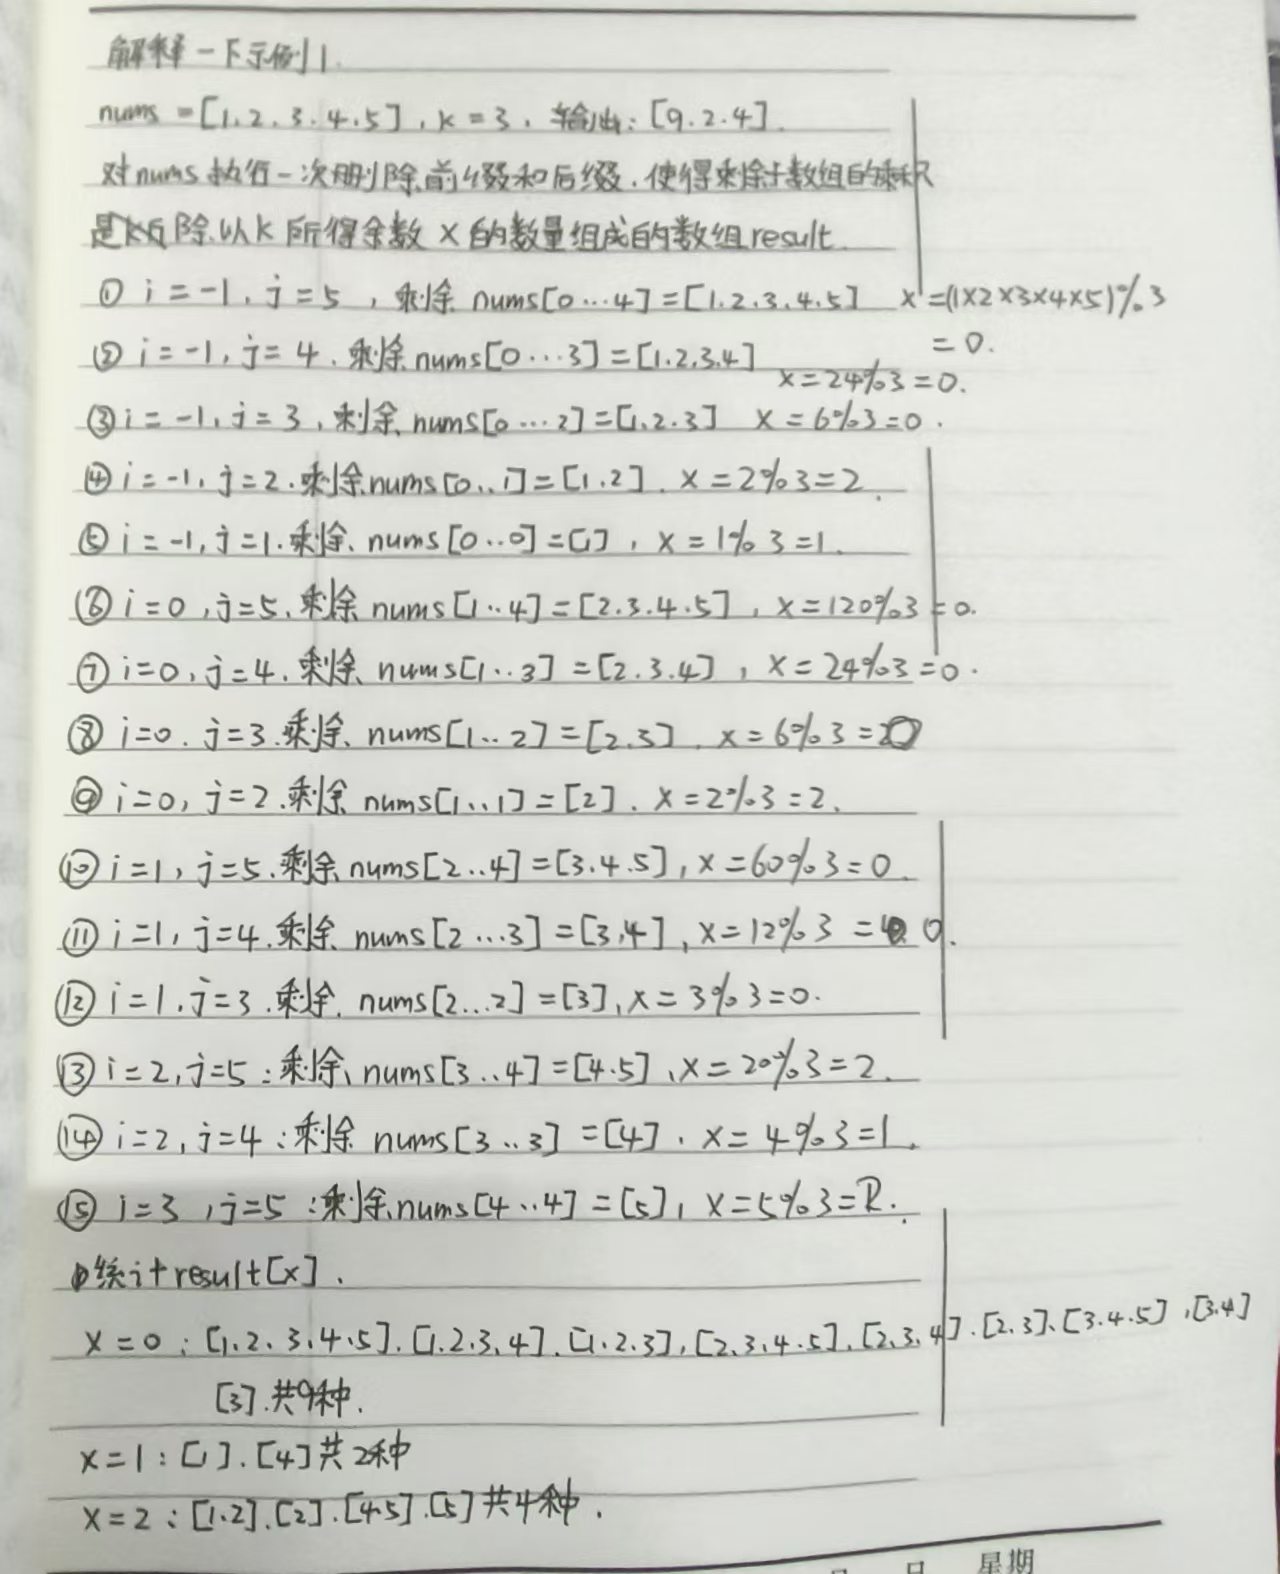 解释一下示例1.
nums = [1.2.3.4.5], k = 3, 输出: [9.2.4].
对nums执行一次删除前缀和后缀.使得剩余子数组的乘积
是 除以k所得余数 x 的数量组成的数组result.
① i = -1, j = 5 , 剩余 nums[0...4] = [1.2.3.4.5] x = (1×2×3×4×5)%3
= 0.
② i = -1, j = 4. 剩余nums[0...3] = [1.2.3.4]
x = 24%3 = 0.
③ i = -1, j = 3, 剩余 nums[0...2] = [1.2.3] x = 6%3 = 0.
④ i = -1, j = 2.剩余nums[0..1] = [1.2]. x = 2%3 = 2.
⑤ i = -1, j = 1.剩余 nums[0..0] = [1], x = 1%3 = 1.
⑥ i = 0, j = 5.剩余 nums[1..4] = [2.3.4.5], x = 120%3 = 0.
⑦ i = 0, j = 4.剩余 nums[1..3] = [2.3.4], x = 24%3 = 0.
⑧ i = 0. j = 3.剩余 nums[1..2] = [2.3]. x = 6%3 = 0
⑨ i = 0, j = 2.剩余 nums[1..1] = [2]. x = 2%3 = 2.
⑩ i = 1, j = 5.剩余 nums[2..4] = [3.4.5], x = 60%3 = 0.
⑪ i = 1, j = 4.剩余 nums[2...3] = [3,4], x = 12%3 = 0.
⑫ i = 1. j = 3.剩余. nums[2...2] = [3], x = 3%3 = 0.
⑬ i = 2, j = 5 : 剩余 nums[3..4] = [4.5], x = 20%3 = 2.
⑭ i = 2, j = 4 : 剩余 nums[3..3] = [4]. x = 4%3 = 1.
⑮ i = 3, j = 5 : 剩余nums[4..4] = [5], x = 5%3 = 2.
统计result[x].
x = 0 : [1.2.3.4.5].[1.2.3.4].[1.2.3],[2.3.4.5].[2.3.4].[2.3].[3.4.5],[3.4]
[3].共9种.
x = 1 : [1].[4]共2种
x = 2 : [1.2].[2].[4.5].[5]共4种.
日 星期